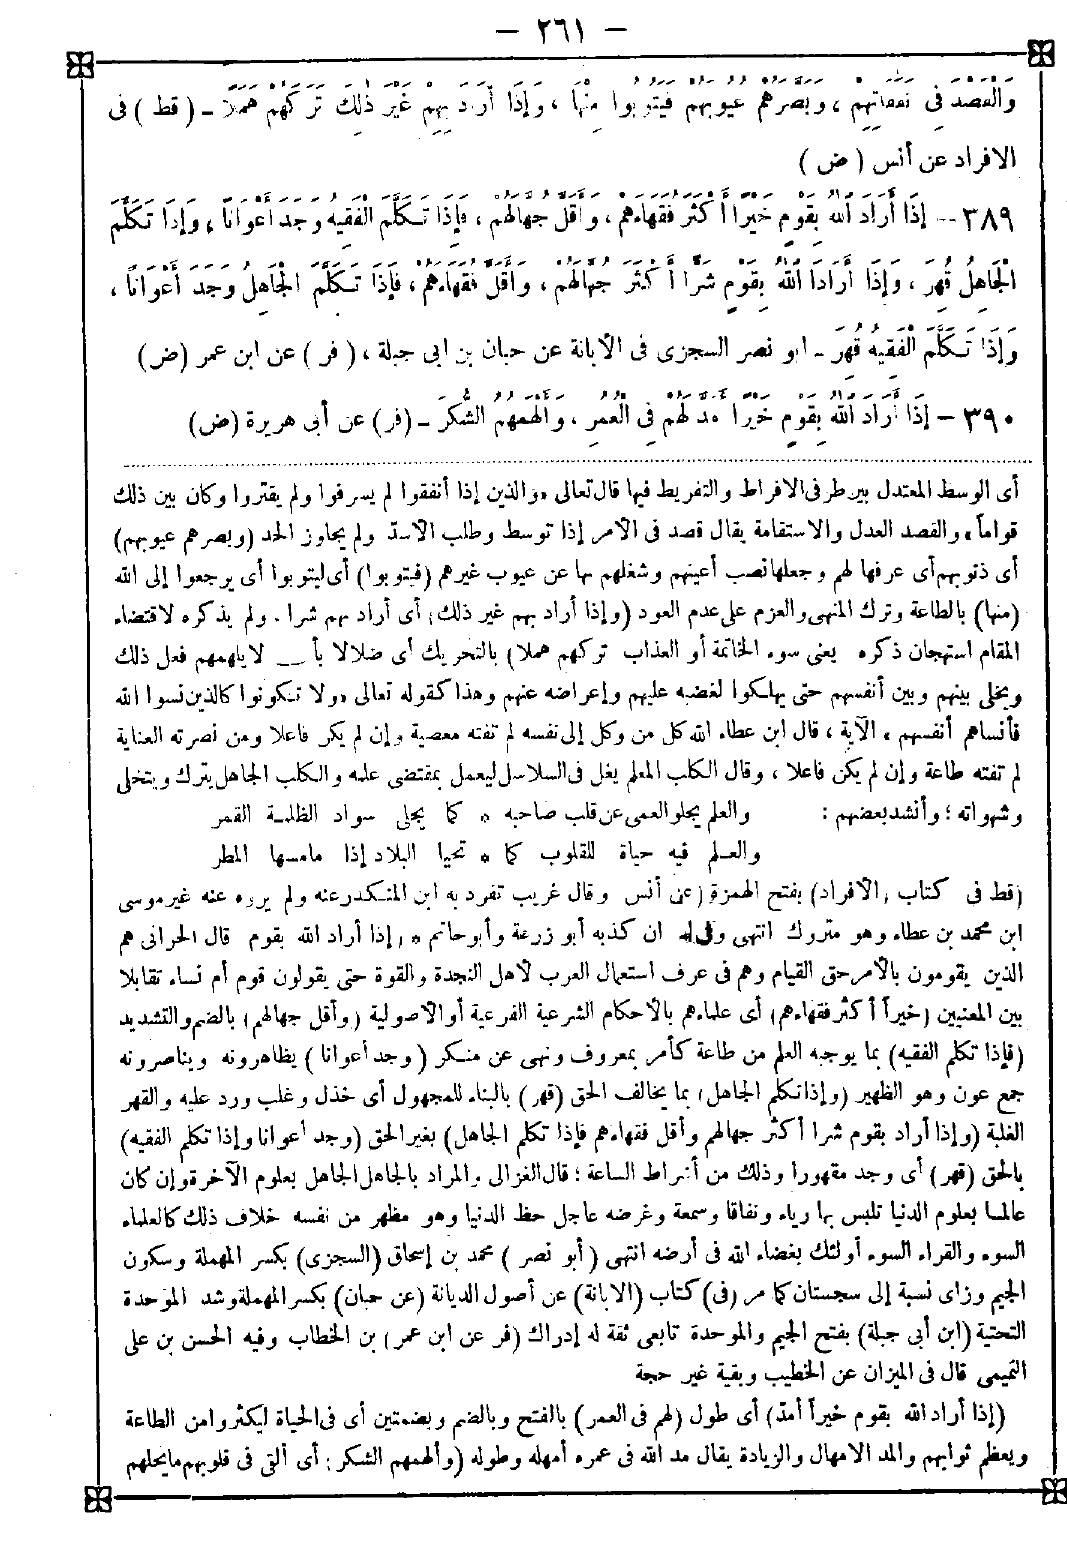 — ٢٦١ —
وَالْقَصْدَ فِى نَفَقَاتِهِمْ ، وَبَصَّرَهُمْ عُيُوبَهُمْ فَيَتُوبُوا مِنْهَا ، وَإِذَا أَرَادَ بِهِمْ غَيْرَ ذٰلِكَ تَرَكَهُمْ هَمَلًا ــ ( قط ) فى
الافراد عن أنس ( ض )
٣٨٩ -- إِذَا أَرَادَ اللّٰهُ بِقَوْمٍ خَيْرًا أَكْثَرَ فُقَهَاءَهُمْ ، وَأَقَلَّ جُهَّالَهُمْ ، فَإِذَا تَكَلَّمَ الْفَقِيهُ وَجَدَ أَعْوَانًا ، وَإِذَا تَكَلَّمَ
الْجَاهِلُ قُهِرَ ، وَإِذَا أَرَادَ اللّٰهُ بِقَوْمٍ شَرًّا أَكْثَرَ جُهَّالَهُمْ ، وَأَقَلَّ فُقَهَاءَهُمْ ، فَإِذَا تَكَلَّمَ الْجَاهِلُ وَجَدَ أَعْوَانًا ،
وَإِذَا تَكَلَّمَ الْفَقِيهُ قُهِرَ ــ ابو نصر السجزى فى الابانة عن حبان بن ابى جبلة ، ( فر ) عن ابن عمر (ض)
٣٩٠ - إِذَا أَرَادَ اللّٰهُ بِقَوْمٍ خَيْرًا مَدَّ لَهُمْ فِى الْعُمُرِ ، وَأَلْهَمَهُمُ الشُّكْرَ ــ (فر) عن أبى هريرة (ض)
أى الوسط المعتدل بين طرفى الافراط والتفريط فيها قال تعالى «والذين إذا أنفقوا لم يسرفوا ولم يقتروا وكان بين ذلك
قواماً» والقصد العدل والاستقامة يقال قصد فى الأمر إذا توسط وطلب الاسدّ ولم يجاوز الحد (وبصرهم عيوبهم)
أى ذنوبهم أى عرفها لهم وجعلها نصب أعينهم وشغلهم بها عن عيوب غيرهم (فيتوبوا) أى ليتوبوا أى يرجعوا إلى الله
(منها) بالطاعة وترك المنهى والعزم على عدم العود (وإذا أراد بهم غير ذلك) أى أراد بهم شرا . ولم يذكره لاقتضاء
المقام استهجان ذكره يعنى سوء الخاتمة أو العذاب تركهم هملا) بالتحريك أى ضلالا بأ لا يلهمهم فعل ذلك
ويخلى بينهم وبين أنفسهم حتى يهلكوا لغضبه عليهم وإعراضه عنهم وهذا كقوله تعالى «ولا تكونوا كالذين نسوا الله
فأنساهم أنفسهم» الآية ، قال ابن عطاء الله كل من وكل إلى نفسه لم تفته معصية وإن لم يكن فاعلا ومن نصرته العناية
لم تفته طاعة وإن لم يكن فاعلا ، وقال الكلب المعلم يغل فى السلاسل ليعمل بمقتضى علمه والكلب الجاهل يترك ويتخلى
وشهواته ؛ وأنشد بعضهم : والعلم يجلو العمى عن قلب صاحبه * كما يجلى سواد الظلمة القمر
والعلم فيه حياة للقلوب كما * تحيا البلاد إذا مامسها المطر
(قط فى كتاب (الافراد) بفتح الهمزة (عن أنس وقال غريب تفرد به ابن المنكدر عنه ولم يروه عنه غير موسى
ابن محمد بن عطاء وهو متروك انتهى وفى له ان كذبه أبو زرعة وأبو حاتم * (إذا أراد الله بقوم قال الحرانى هم
الذين يقومون بالأمر حق القيام وهم فى عرف استعمال العرب لأهل النجدة والقوة حتى يقولون قوم أم نساء تقابلا
بين المعنيين (خيراً أكثر فقهاءهم) أى علماءهم بالأحكام الشرعية الفرعية أو الاصولية (وأقل جهالهم) بالضم والتشديد
(فإذا تكلم الفقيه) بما يوجبه العلم من طاعة كأمر بمعروف ونهى عن منكر (وجد أعوانا) يظاهرونه ويناصرونه
جمع عون وهو الظهير (وإذا تكلم الجاهل) بما يخالف الحق (قهر) بالبناء للمجهول أى خذل وغلب ورد عليه والقهر
الغلبة (وإذا أراد بقوم شرا أكثر جهالهم وأقل فقهاءهم فإذا تكلم الجاهل) بغير الحق (وجد أعوانا وإذا تكلم الفقيه)
بالحق (قهر) أى وجد مقهورا وذلك من أشراط الساعة ؛ قال الغزالى والمراد بالجاهل الجاهل بعلوم الآخرة وإن كان
عالما بعلوم الدنيا تلبس بها رياء ونفاقا وسمعة وغرضه عاجل حظ الدنيا وهو مظهر من نفسه خلاف ذلك كالعلماء
السوء والقراء السوء أولئك بغضاء الله فى أرضه انتهى (أبو نصر) محمد بن إسحاق (السجزى) بكسر المهملة وسكون
الجيم وزاى نسبة إلى سجستان كما مر (فى) كتاب (الابانة) عن أصول الديانة (عن حبان) بكسر المهملة وشد الموحدة
التحتية (ابن أبى جبلة) بفتح الجيم والموحدة تابعى ثقة له إدراك (فر عن ابن عمر) بن الخطاب وفيه الحسن بن على
التميمى قال فى الميزان عن الخطيب وبقية غير حجة
(إذا أراد الله بقوم خيراً أمدّ) أى طول (لهم فى العمر) بالفتح وبالضم وبضمتين أى فى الحياة ليكثروا من الطاعة
ويعظم ثوابهم والمد الامهال والزيادة يقال مد الله فى عمره أمهله وطوله (وألهمهم الشكر) أى ألقى فى قلوبهم مايحملهم